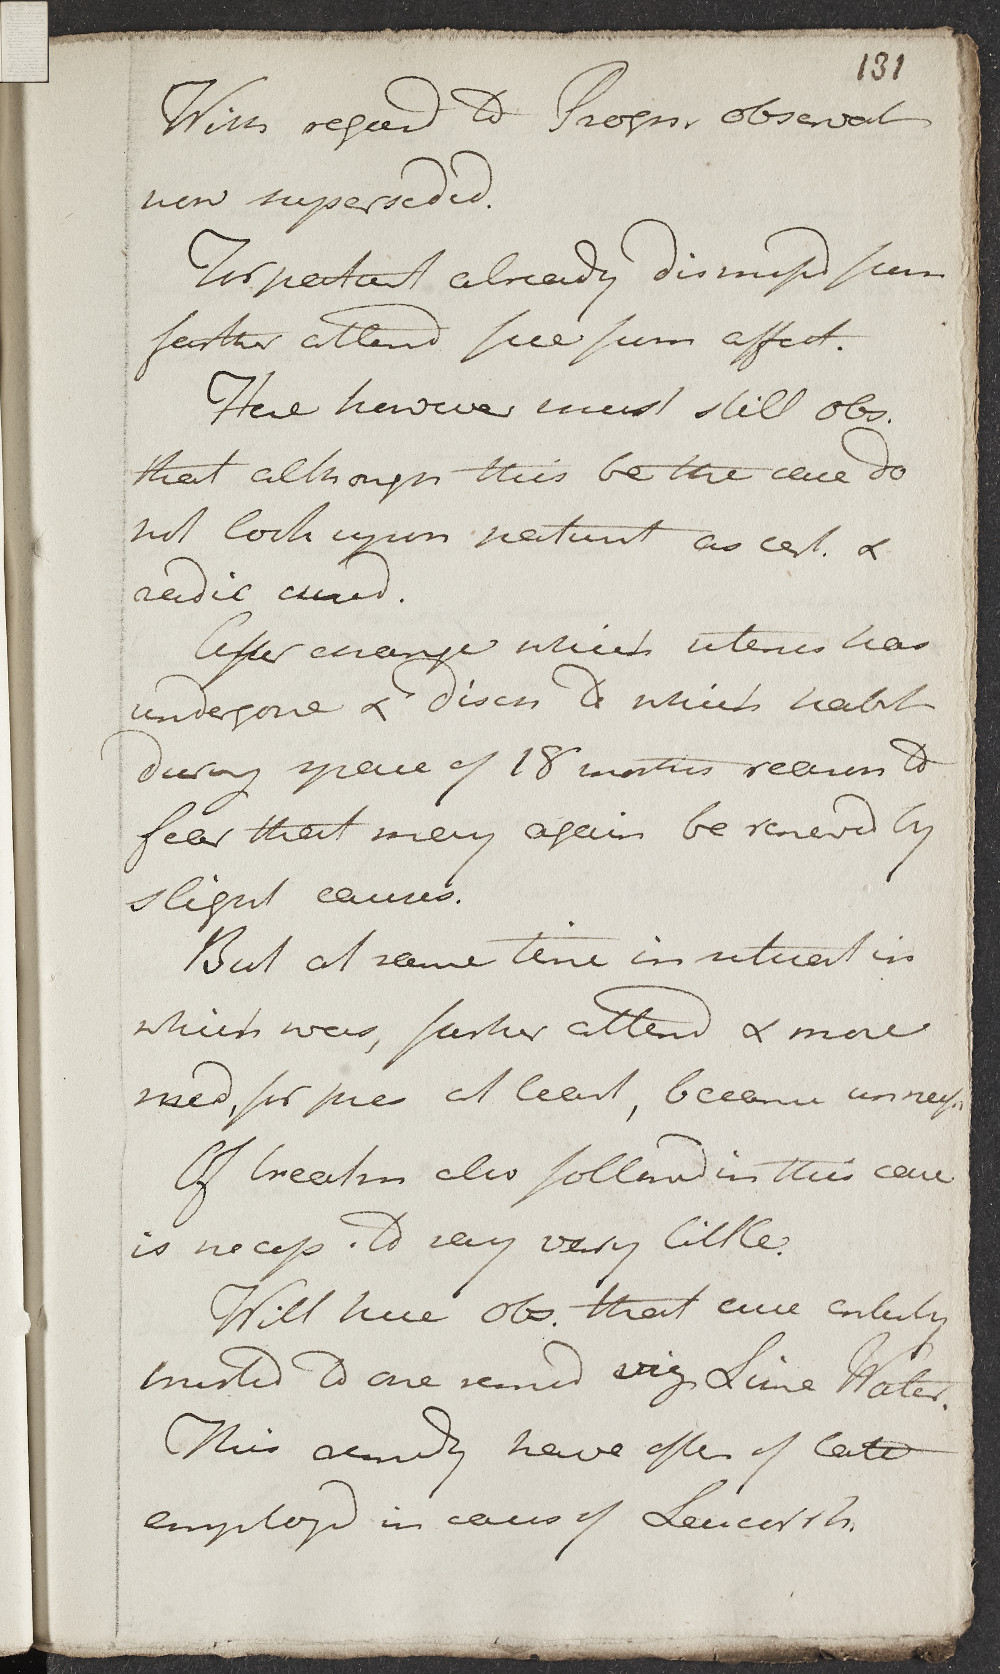 131
With regard to Progn. observat
now superseded.
For patient already dismissd from
farther attend free from affect.
Here however must still obs.
that although this be the case do
not look upon patient as cert. &
radic cured.
After change which uterus has
undergone & disch to which habit
during space of 18 months reason to
fear that may again be renewd by
slight causes.
But at same time in situat in
which was, farther attend & more
med, for pres at least, became unnecess
Of treatm also followd in this case
is necess. to say very little.
Will here obs. that cure entirely
trusted to one remed viz Lime Water.
This remedy have often of late
employd in cases of Leucorrh.